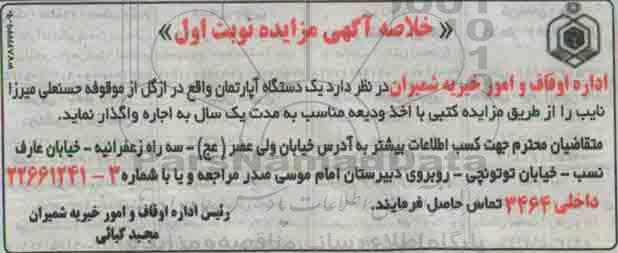 « خلاصه آگهی مزایده نوبت اول »
اداره اوقاف و امور خیریه شمیران در نظر دارد یک دستگاه آپارتمان واقع در ازگل از موقوفه حسنعلی میرزا
نایب را از طریق مزایده کتبی با اخذ ودیعه مناسب به مدت یک سال به اجاره واگذار نماید.
متقاضیان محترم جهت کسب اطلاعات بیشتر به آدرس خیابان ولی عصر (عج) - سه راه زعفرانیه - خیابان عارف
نسب - خیابان توتونچی - روبروی دبیرستان امام موسی صدر مراجعه و یا با شماره ۳ - ۲۲۶۶۱۲۴۱
داخلی ۳۴۶۴ تماس حاصل فرمایند.
رئیس اداره اوقاف و امور خیریه شمیران
مجید کیائی
ParsNamadData